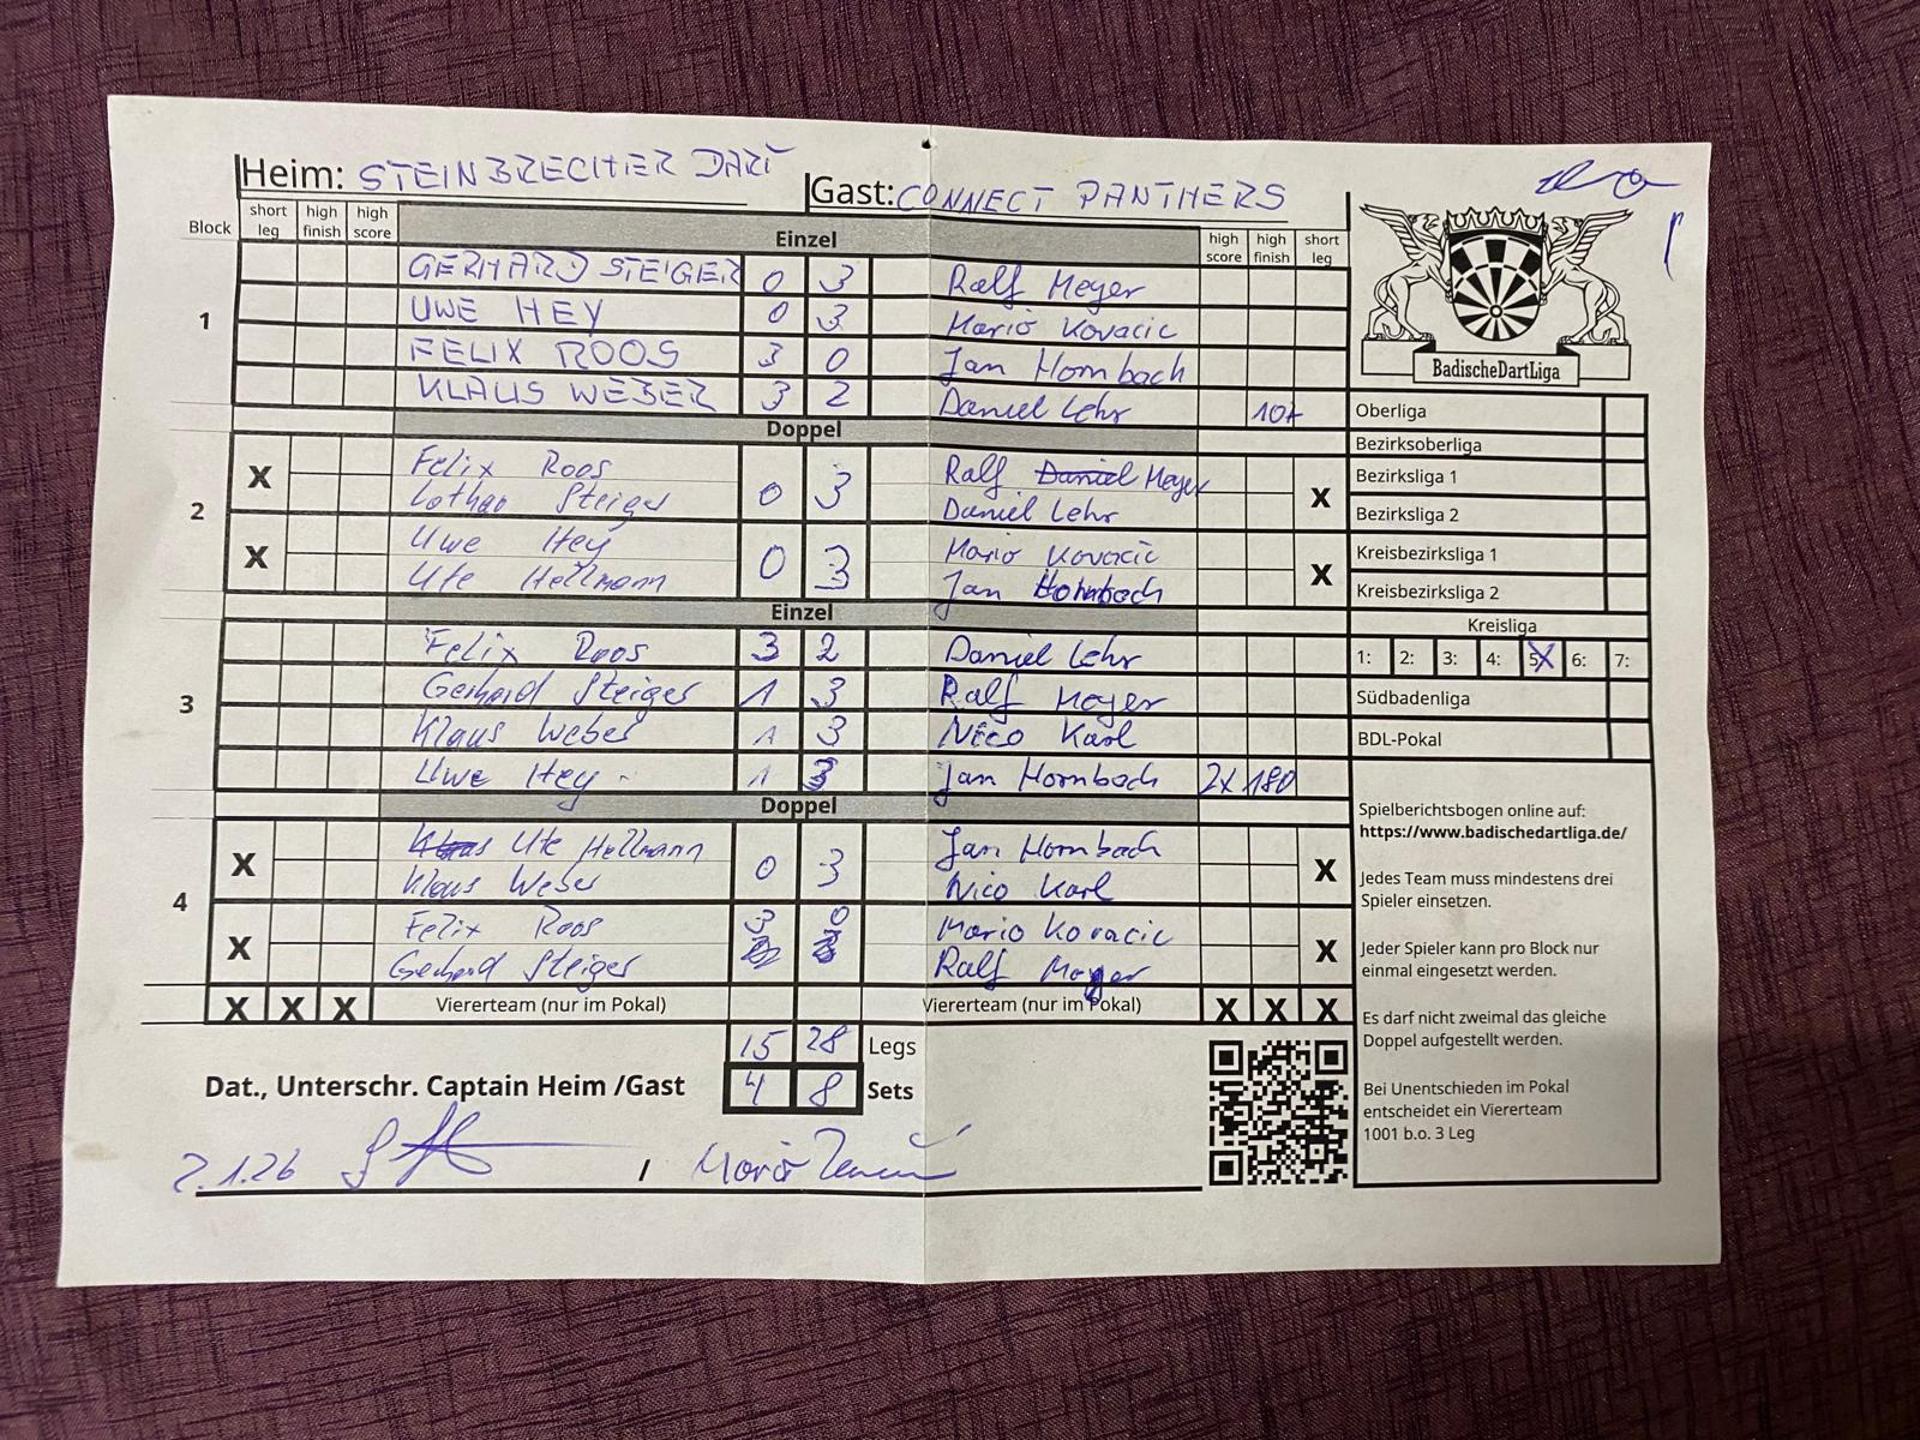 Heim: STEINBRECHER DART Gast: CONNECT PANTHERS
Block short leg high finish high score Einzel high score high finish short leg
1
GERHARD STEIGER 0 3 Ralf Meyer
UWE HEY 0 3 Mario Kovacic
FELIX ROOS 3 0 Jan Hornbach
KLAUS WEBER 3 2 Daniel Lehr
Doppel
2
X Felix Roos 0 3 Ralf Daniel Meyer X
Lothar Steiger Daniel Lehr
X Uwe Hey 0 3 Mario Kovacic X
Ute Hellmann Jan Hornbach
Einzel
3
Felix Roos 3 2 Daniel Lehr
Gerhard Steiger 1 3 Ralf Meyer
Klaus Weber 1 3 Nico Karl
Uwe Hey 1 3 Jan Hornbach 2x 180
Doppel
4
X Klaus Ute Hellmann 0 3 Jan Hornbach X
Klaus Weber Nico Karl
X Felix Roos 3 0 Mario Kovacic X
Gerhard Steiger Ralf Meyer
X X X Viererteam (nur im Pokal) Viererteam (nur im Pokal) X X X
15 28 Legs
Dat., Unterschr. Captain Heim /Gast 4 8 Sets
2.1.26 / Mario
BadischeDartLiga
Oberliga
Bezirksoberliga
Bezirksliga 1
Bezirksliga 2
Kreisbezirksliga 1
Kreisbezirksliga 2
Kreisliga
1: 2: 3: 4: 5: X 6: 7:
Südbadenliga
BDL-Pokal
Spielberichtsbogen online auf:
https://www.badischedartliga.de/
Jedes Team muss mindestens drei
Spieler einsetzen.
Jeder Spieler kann pro Block nur
einmal eingesetzt werden.
Es darf nicht zweimal das gleiche
Doppel aufgestellt werden.
Bei Unentschieden im Pokal
entscheidet ein Viererteam
1001 b.o. 3 Leg